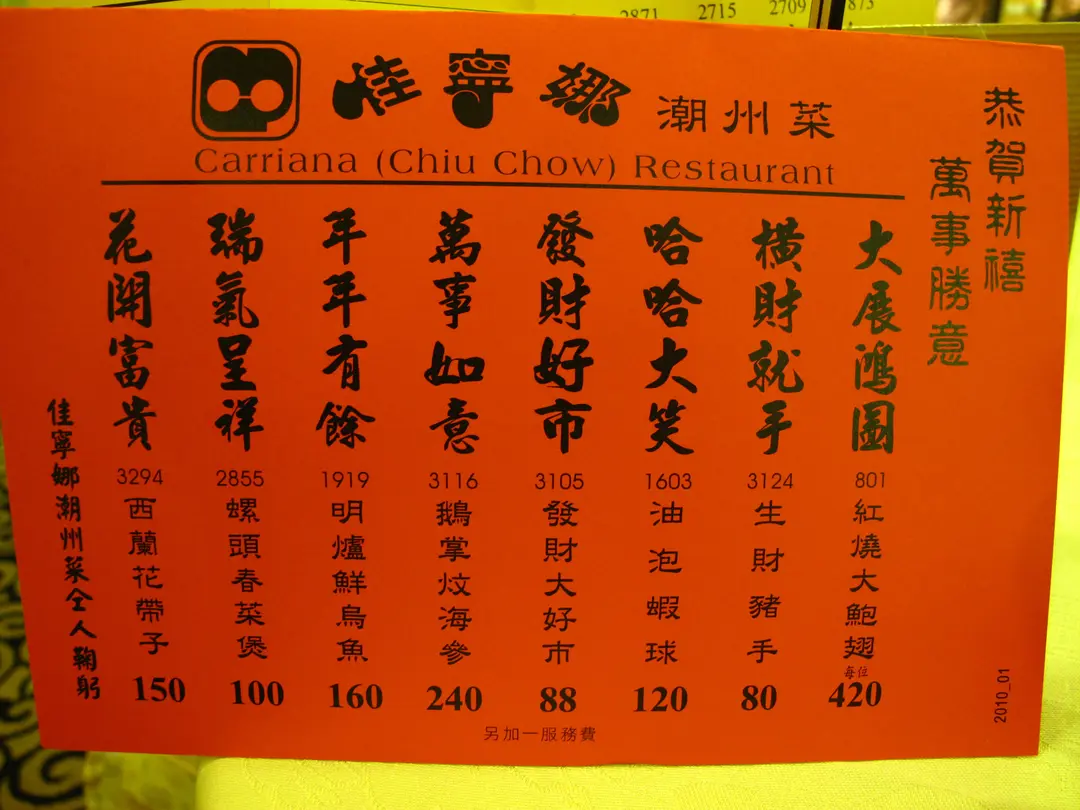 2871 2715 2709 873
佳寧娜 潮州菜
Carriana (Chiu Chow) Restaurant
恭賀新禧
萬事勝意
大展鴻圖
801
紅燒大鮑翅
每位
420
橫財就手
3124
生財豬手
80
哈哈大笑
1603
油泡蝦球
120
發財好市
3105
發財大好市
88
萬事如意
3116
鵝掌炆海參
240
年年有餘
1919
明爐鮮烏魚
160
瑞氣呈祥
2855
螺頭春菜煲
100
花開富貴
3294
西蘭花帶子
150
佳寧娜潮州菜仝人鞠躬
另加一服務費
2010_01